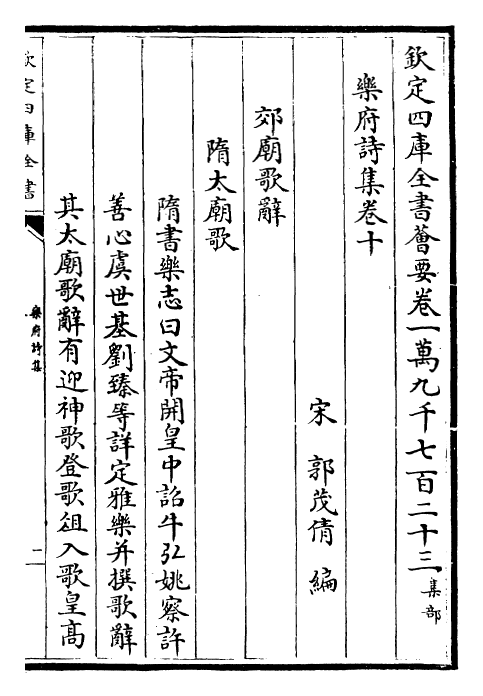 欽定四庫全書薈要卷一萬九千七百二十三集部
樂府詩集卷十
宋 郭茂倩 編
郊廟歌辭
隋太廟歌
隋書樂志曰文帝開皇中詔牛弘姚察許
善心虞世基劉臻等詳定雅樂并撰歌辭
其太廟歌辭有迎神歌登歌俎入歌皇高
欽定四庫全書
樂府詩集
二